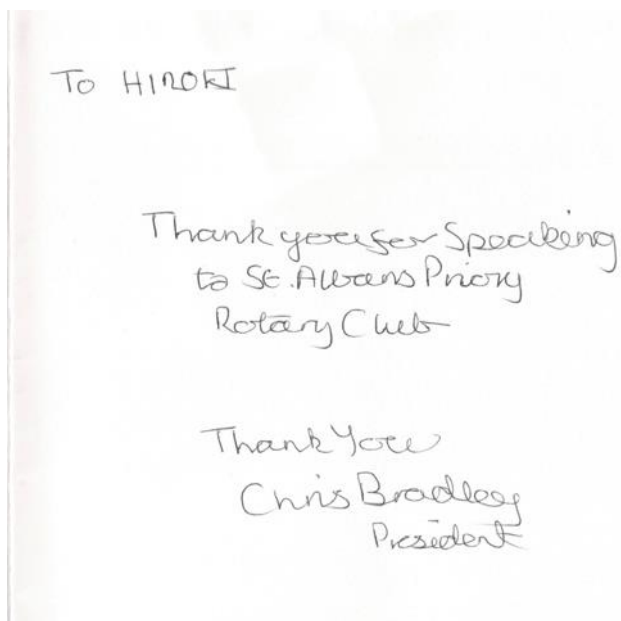 To HIROKI
Thank you for Speaking
to St. Albans Priory
Rotary Club
Thank You
Chris Bradley
President